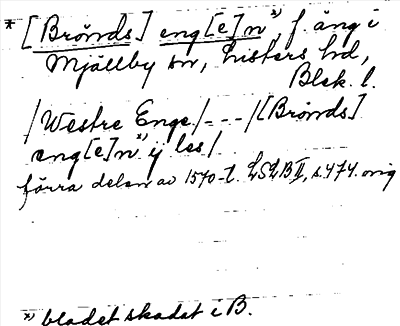 * [Brönds] eng[e]n *), f. äng i
Mjällby sn, Listers hd,
Blek. l.
/Westre Enge/ - - - /[Brönds]
eng[e]n *) ij les/
förra delen av 1570-t. LSLB II, s. 474. orig
*) bladet skadat i B.